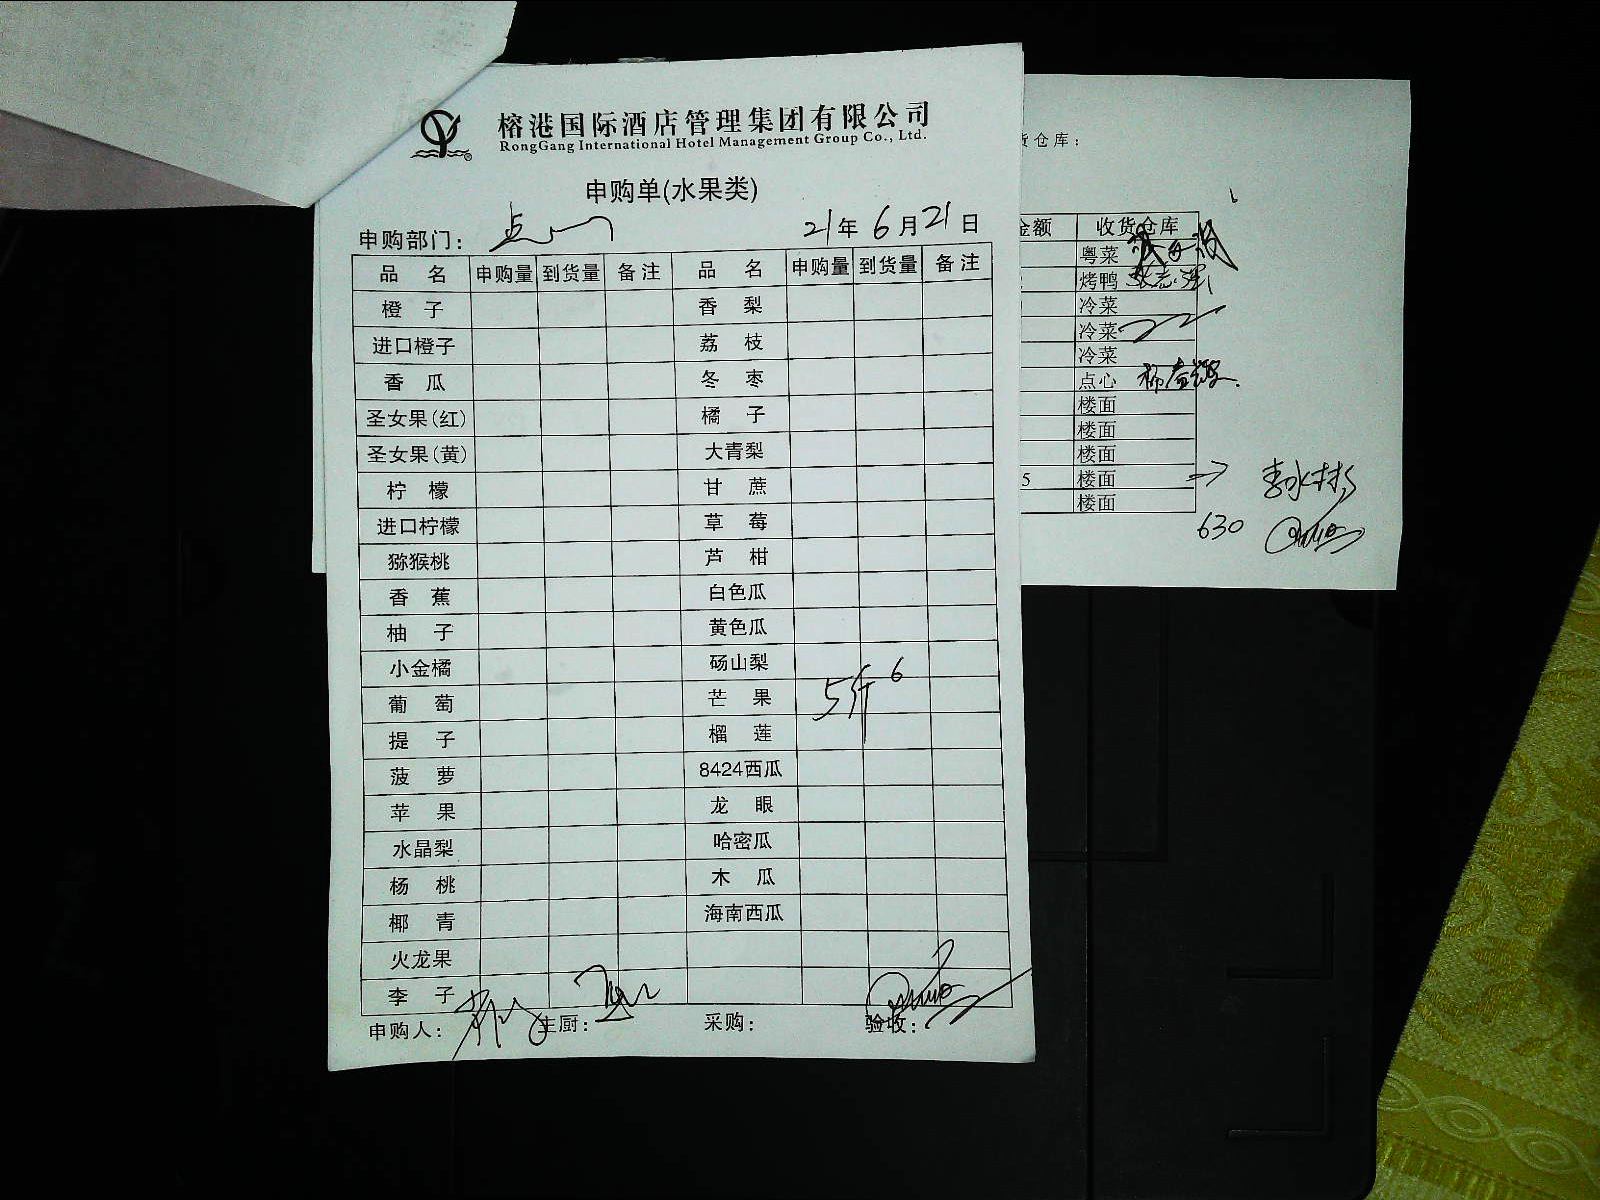 榕港国际酒店管理集团有限公司
RongGang International Hotel Management Group Co., Ltd.
申购单(水果类)
申购部门: 点心 21年6月21日
品名 申购量 到货量 备注 品名 申购量 到货量 备注
橙子 香梨
进口橙子 荔枝
香瓜 冬枣
圣女果(红) 橘子
圣女果(黄) 大青梨
柠檬 甘蔗
进口柠檬 草莓
猕猴桃 芦柑
香蕉 白色瓜
柚子 黄色瓜
小金橘 砀山梨
葡萄 芒果 5斤 6
提子 榴莲
菠萝 8424西瓜
苹果 龙眼
水晶梨 哈密瓜
杨桃 木瓜
椰青 海南西瓜
火龙果
李子
申购人: 主厨: 采购: 验收:
货仓库:
金额 收货仓库
粤菜
烤鸭
冷菜
冷菜
冷菜
点心
楼面
楼面
楼面
5 楼面
楼面
630